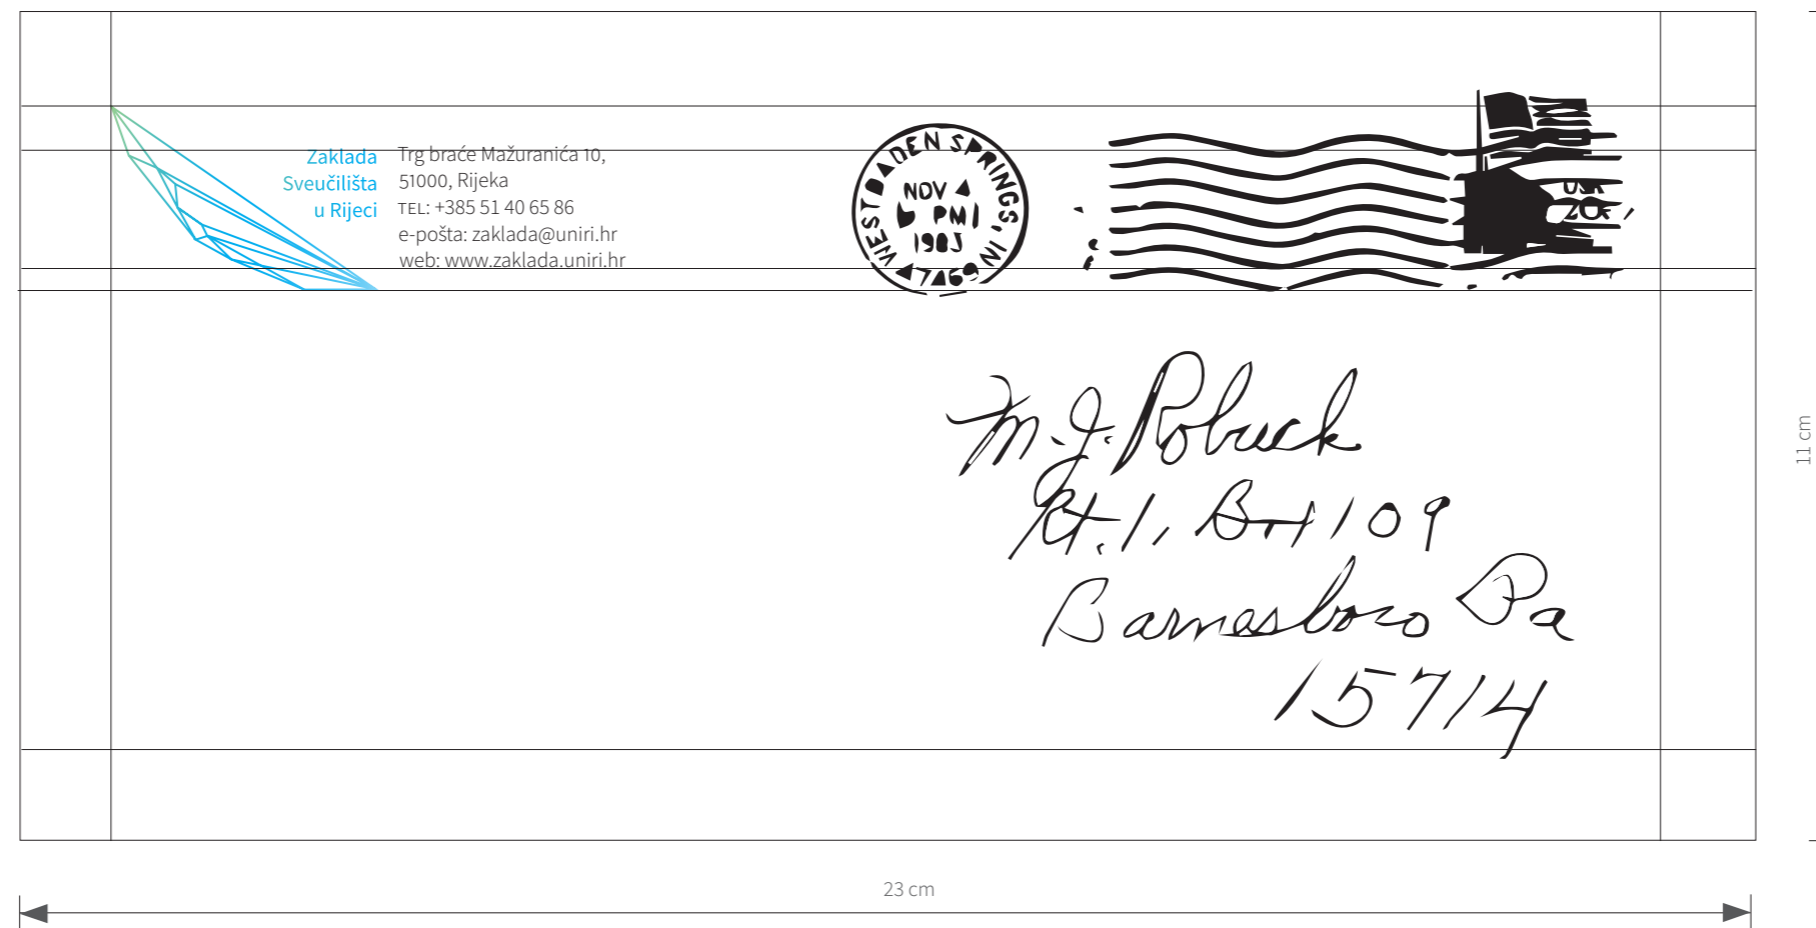 Zaklada
Sveučilišta
u Rijeci
Trg braće Mažuranića 10,
51000, Rijeka
TEL: +385 51 40 65 86
e-pošta: zaklada@uniri.hr
web: www.zaklada.uniri.hr
WEST BADEN SPRINGS, IN
NOV
PM
USA
20
M.J. Robuck
Rt. 1, Box 109
Barnesboro Pa
15714
11 cm
23 cm